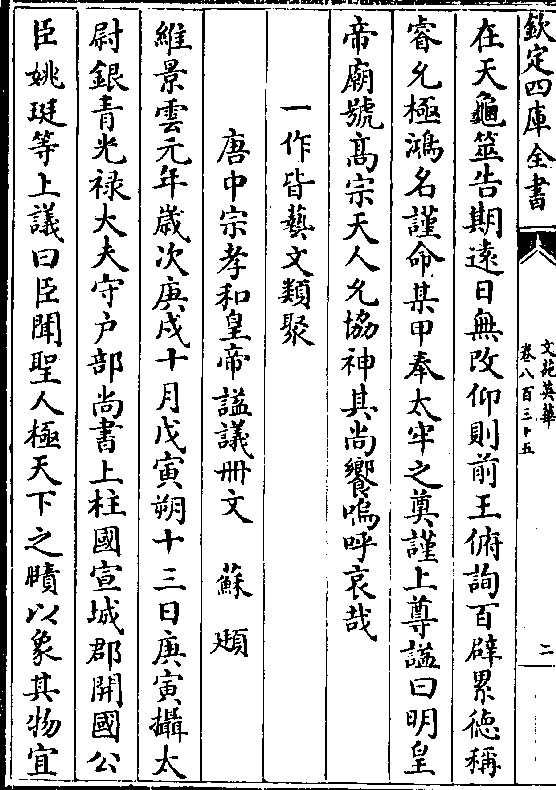 欽定四庫全書
文苑英華
卷八百三十五
二
在天龜筮告期遠日無改仰則前王俯詢百辟累徳稱
睿允極鴻名謹命某甲奉太牢之奠謹上尊諡曰明皇
帝廟號髙宗天人允協神其尚饗嗚呼哀哉
一作皆藝文類聚
唐中宗孝和皇帝諡議冊文 蘇頲
維景雲元年歲次庚戌十月戊寅朔十三日庚寅攝太
尉銀青光禄大夫守户部尚書上柱國宣城郡開國公
臣姚珽等上議曰臣聞聖人極天下之賾以象其物宜